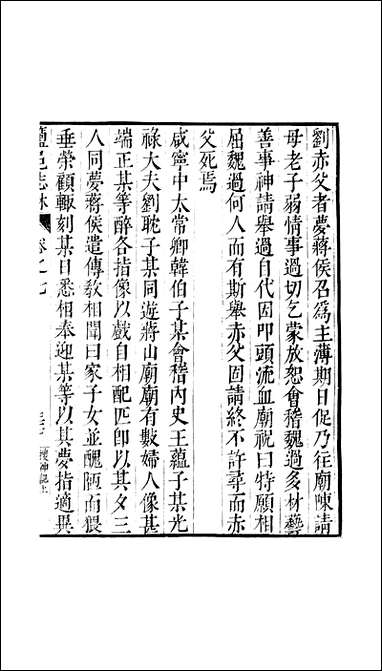 劉赤父者夢蔣侯召爲主簿期日促乃往廟陳請
母老子弱情事過切乞蒙放恕會稽魏過多材藝
善事神請舉過自代因叩頭流血廟祝曰特願相
屈魏過何人而有斯舉赤父固請終不許尋而赤
父死焉
咸寧中太常卿韓伯子某會稽内史王蘊子某光
祿大夫劉耽子某同遊蔣山廟廟有數婦人像甚
端正某等醉各指像以戲自相配匹即以其夕三
人同夢蔣侯遣傳教相聞曰家子女並醜陋而猥
垂榮顧輙刻某日悉相奉迎某等以其夢指適異
鹽邑志林 卷之七 搜神記上